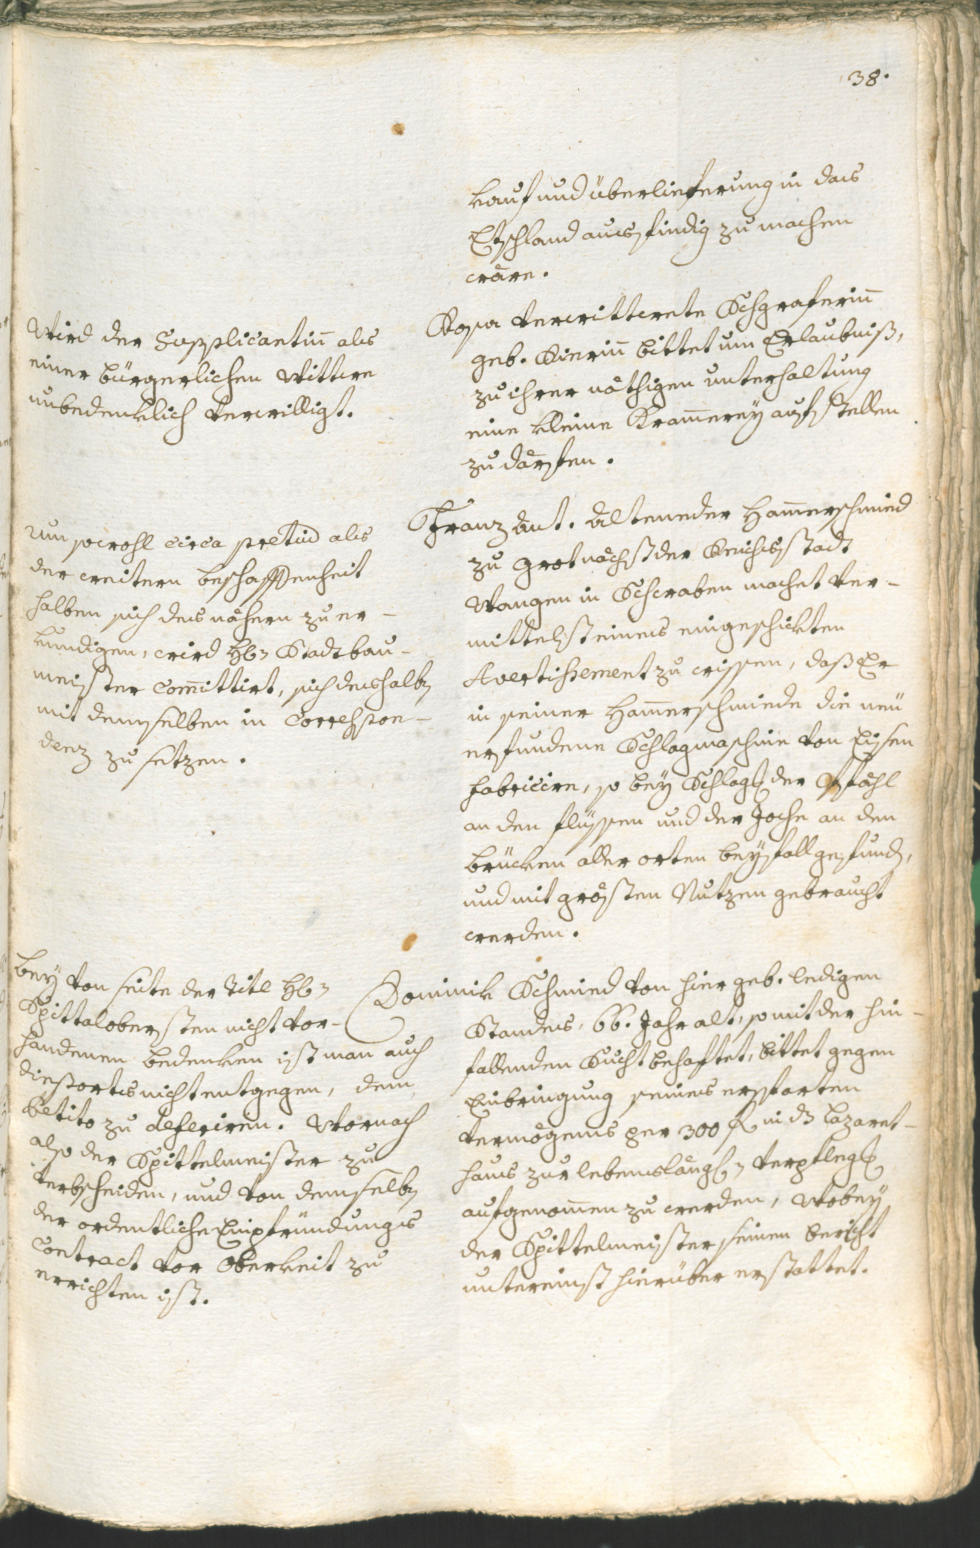 38.
kauf und überlieferung in das
Etschland ausfindig zu machen
wäre.
Wird der Supplicantin̄ als
einer bürgerlichen Wittwe
unbedenklich verwilligt.
Rosa verwittwete Schgraferin̄
geb. Kierin̄ bittet um Erlaubniß,
zu ihrer nöthigen unterhaltung
eine kleine Kram̄erey aufstellen
zu därfen.
Um sowohl circa pretiū als
der weitern beschaffenheit
halben sich des nähern zu er-
kundigen, wird H. Stadtbau-
meister com̄ittirt, sich deshalb
mit demselben in Correspon-
denz zu setzen.
Franz Ant. Alteneder Ham̄erschmied
zu Grot nächst der Reichsstadt
Wangen in Schwaben machet ver-
mittelst eines eingeschikten
Avertissement zu wissen, daß Er
in seiner Ham̄erschmiede die neu
erfundene Schlagmaschine von Eisen
fabricire, so bey Schlag der Pfähl
an den flüssen und der Joche an den
brücken aller orten beyfall gefund,
und mit grösten Nutzen gebraucht
werden.
bey von seite der Titl H.
Spittalobersten nicht vor-
handenen bedenken ist man auch
dießorts nicht entgegen, dem
Petito zu deferiren. Wornach
also der Spittelmeister zu
verbscheiden, und von demselb
der ordentliche Einpfründungs
Contract vor Oberkeit zu
errichten ist.
Dominik Schmied von hier geb. ledigen
Standes, 66. Jahr alt, so mit der hin-
fallenden Sucht behaftet, bittet gegen
Einbringung seines ersparten
Vermögens per 300 f in dz Lazaret-
haus zur lebenslängl. Verpfleg
aufgenom̄en zu werden, Wobey
der Spittelmeister seinen bericht
untereinst hierüber erstattet.